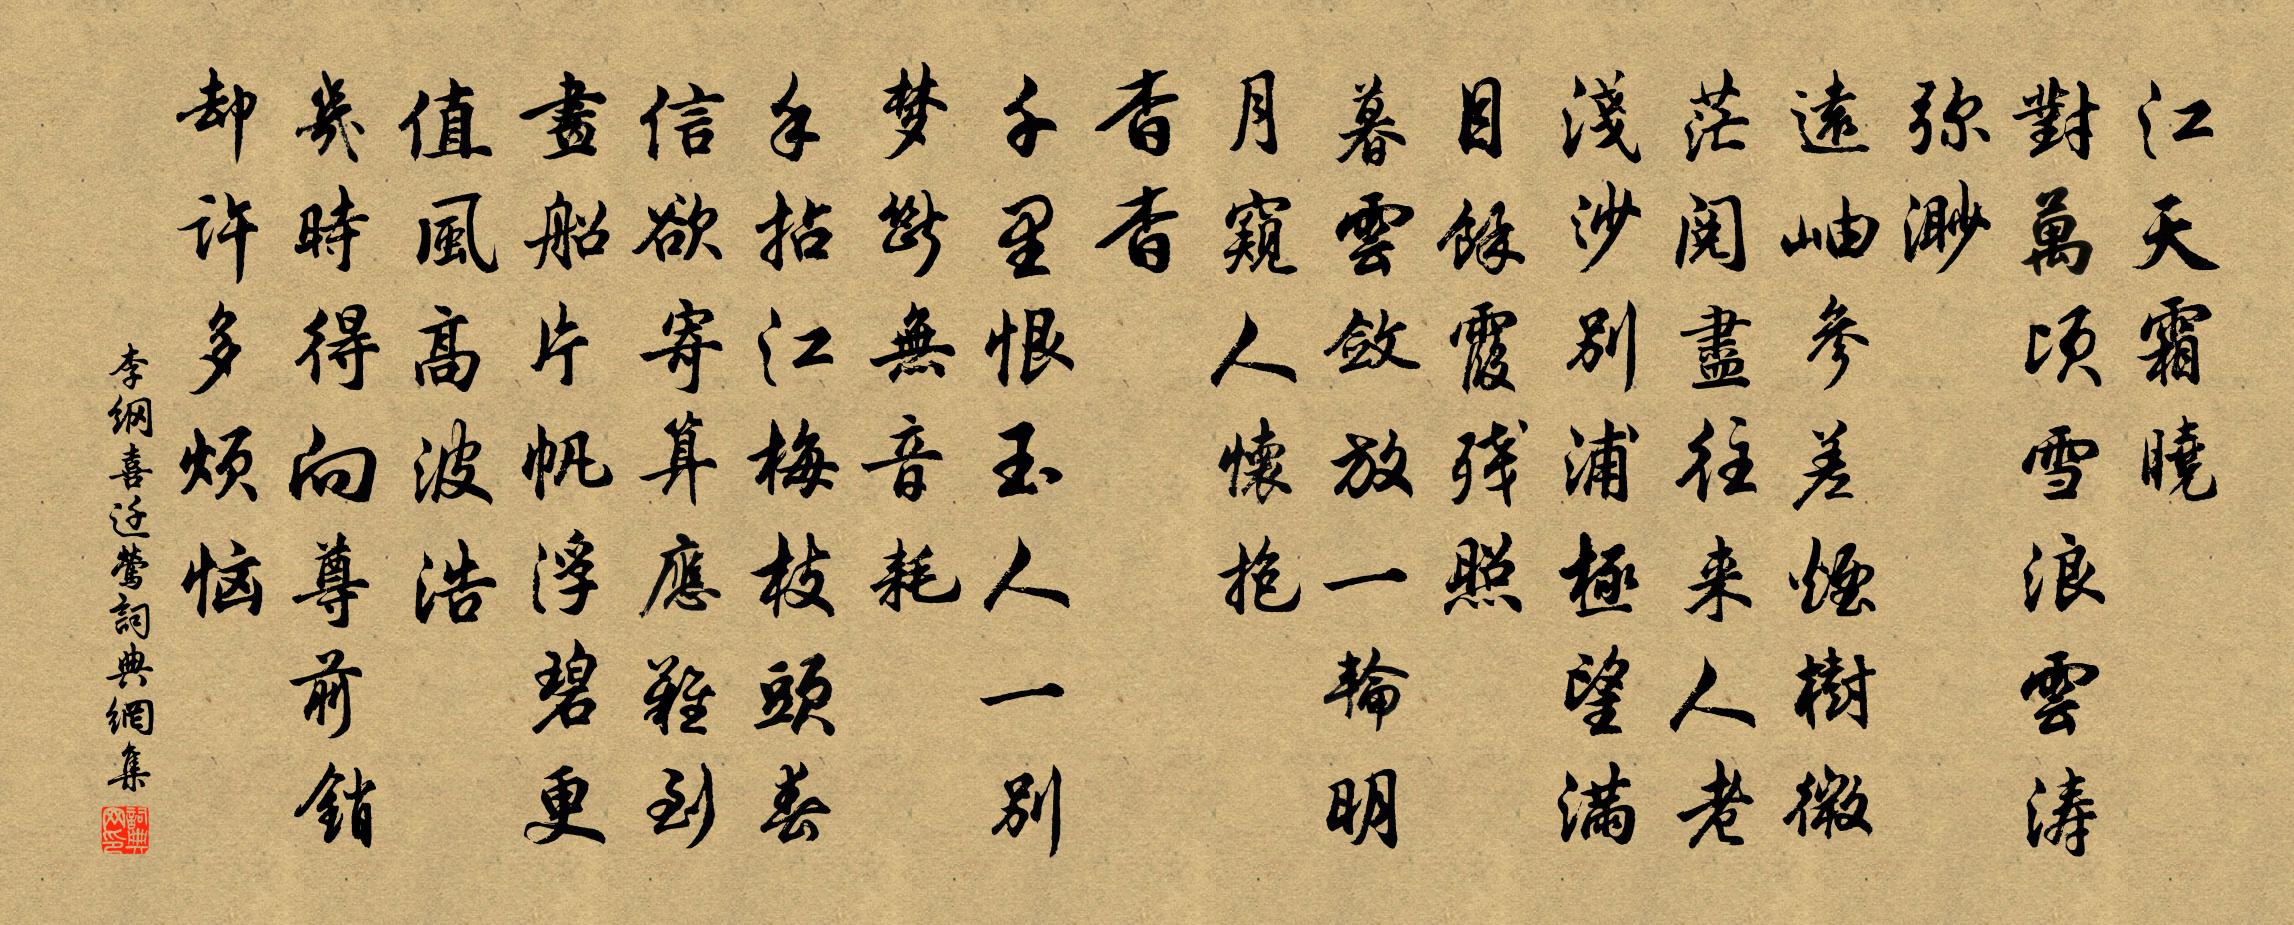 江天霜曉
對萬頃雪浪雲濤
弥渺
遠岫參差煙樹微
茫閱盡往来人老
淺沙別浦極望滿
目餘霞残照
暮雲斂放一輪明
月窺人懷抱
杳杳
千里恨玉人一別
梦斷無音耗
手拈江梅枝頭春
信欲寄算應難到
畫船片帆浮碧更
值風高波浩
幾時得向尊前銷
却許多煩恼
李纲喜迁鶯詞典網集
詞典网印